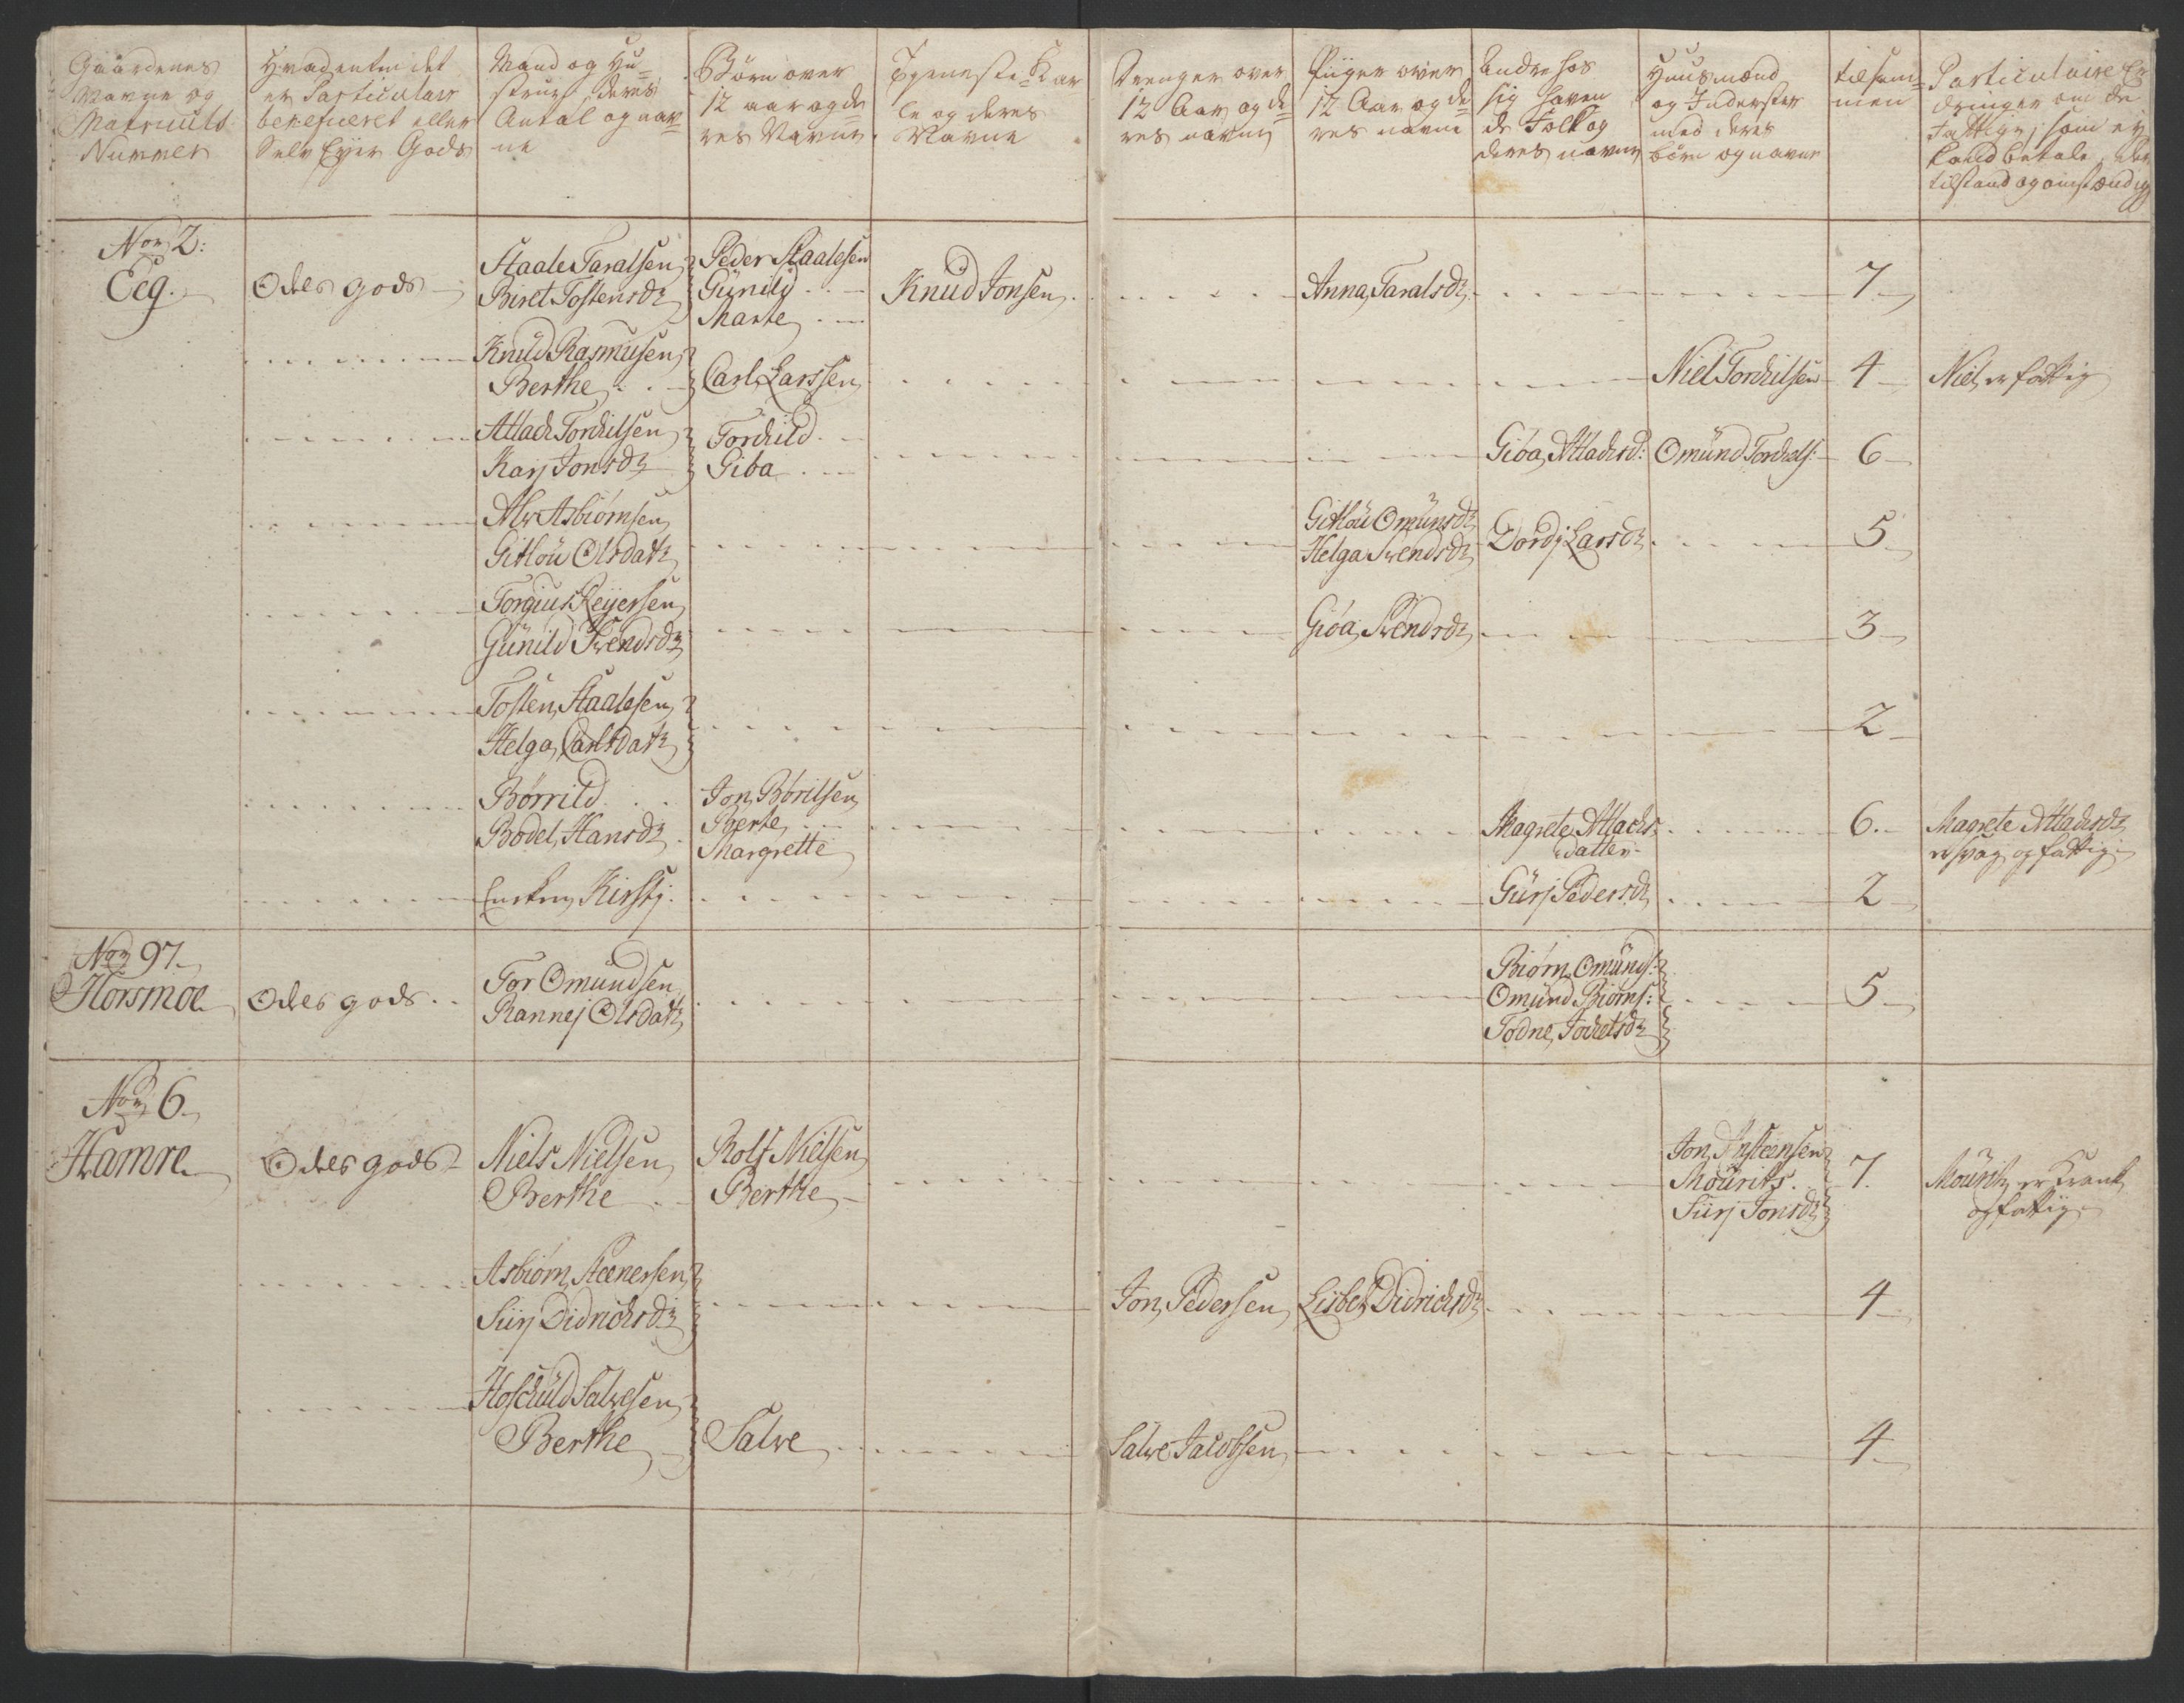 Gaardenes
Navne og
Matriculs
Nummer
Hvad enten det
er Particulair
beneficeret eller
Selv Ejer Gods
Mand og Hu=
strue, deres
Antal og nav=
ne
Børn over
12 aar og de
res Navne
Tjeneste-Kar
le og deres
Navne
Drenger over
12 Aar og de=
res navne
Piiger over
12 Aar og de=
res navne
Andre hos
sig haven
de Folk og
deres navne
Huusmænd
og Inderster
med deres
børn og navne
tilsam=
men
Particulaire Er
æringer om de
Fattige, som ey
kand betale, der
tilstand og omstændig
No 2:
Eeg.
Odels gods
Staale Taralsen
Biret Tostensdr
Peder Staalesen
Gunild
Marte
Knud Jonsen
Anna Taralsdr
7
Knud Rasmusen
Berthe
Carl Larssen
Niel Torkilsen
4
Niels er fattig
Atlack Torkilsen
Karj Jonsdr
Torkild
Giba
Giøa Atlaksd:
Omund Torkels:
6
Alv Asbiørnsen
Gitlou Olsdatr
Gitlou Omunsdr
Helga Svendsdr
Dordj Larsdr
5
Torgius Reijersen
Gunild Svendsdr
Giøa Svendsdr
3
Tosten Staalesen
Helga Carlsdatr
2
Børrild
Bodel Hansdr
Jon Børilsen
Berte
Margrette
Magrete Atlachs
datter
6
Magrete Atlaksdr
er svag og fattig
Enken Kirstj
Gurj Pedersdr
2
No 97
Horsmoe
Odels gods
Tor Omundsen
Rannej Olsdatr
Biørn Omunds:
Omund Biørns:
Todne Tockelsdr
5
No 6
Hamre
Odels gods
Niels Nielsen
Berthe
Rolf Nielsen
Berthe
Jon Østeensen
Mourits
Siirj Jonsdr
7
Mourits er Krank
og fattig
Asbiørn Steenersen
Siirj Didrichsdr
Jon Pedersen
Lisbet Didrichsdr
4
Hoschuld Salvesen
Berthe
Salve
Salve Jacobsen
4